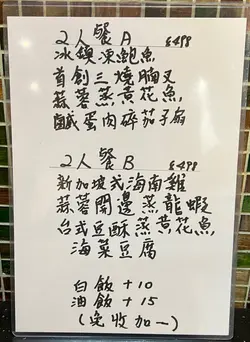 2人餐A $498
冰鎮凍鮑魚
首創三燒腩叉
蒜蓉蒸黃花魚
鹹蛋肉碎茄子煲
2人餐B $498
新加坡式海南雞
蒜蓉開邊蒸龍蝦
台式豆酥蒸黃花魚
海菜豆腐
白飯 +10
油飯 +15
(免收加一)